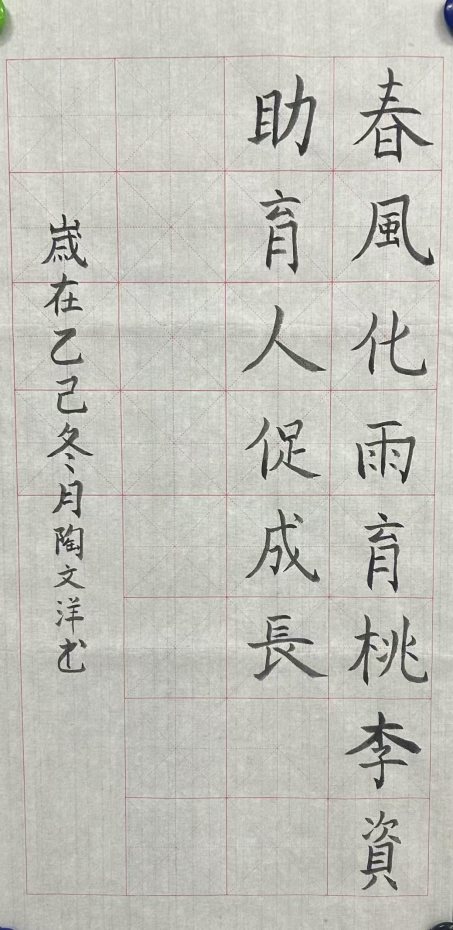 春風化雨育桃李資
助育人促成長
歲在乙己冬月陶文洋书